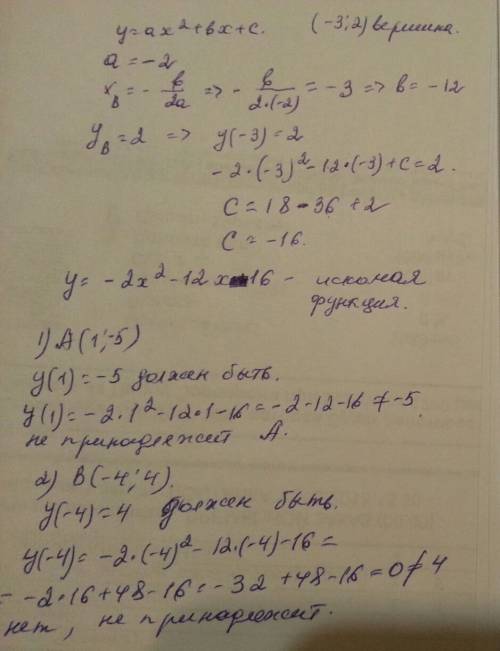 y=ax²+bx+c. (-3;2) вершина.
a=-2
x_B=-b/2a => -b/2·(-2)=-3 => b=-12
y_B=2 => y(-3)=2
-2·(-3)²-12·(-3)+c=2.
c=18-36+2
c=-16.
y=-2x²-12x-16 - искомая
функция.
1) A(1;-5)
y(1)=-5 должен быть.
y(1)=-2·1²-12·1-16=-2-12-16≠-5
не принадлежит A.
2) B(-4;4).
y(-4)=4 должен быть.
y(-4)=-2·(-4)²-12·(-4)-16=
=-2·16+48-16=-32+48-16=0≠4
нет, не принадлежит.